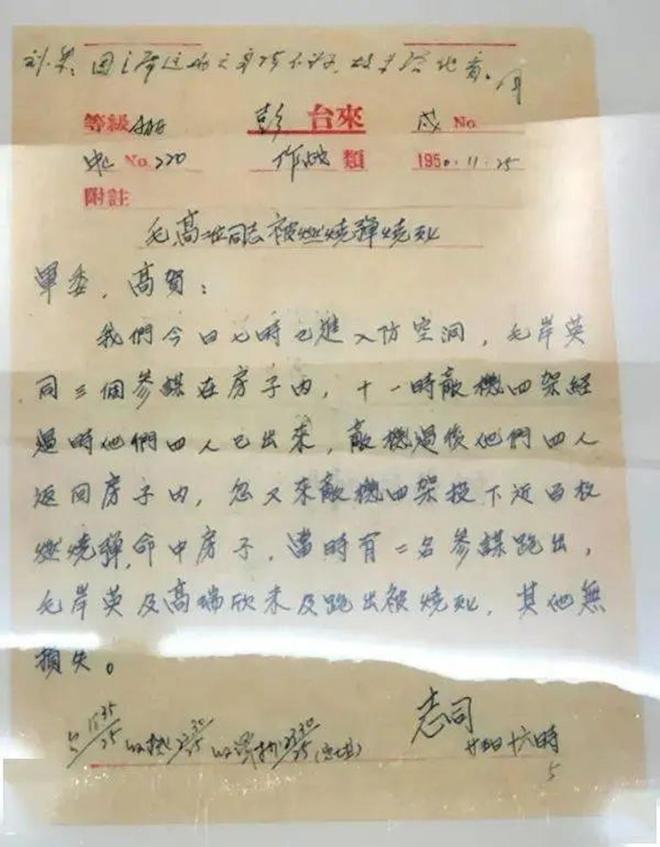 刘、
等級AAAA 彭 台來 戌 No.
No.220 作战 類 1950.11.25
附註
毛高二位同志被燃燒彈燒死
軍委,高賀:
我們今日七時已進入防空洞,毛岸英
同三個參謀在房子內,十一時敵機四架經
過時他們四人已出來,敵機過後他們四人
返回房子內,忽又來敵機四架投下近百枚
燃燒彈,命中房子,當時有二名參謀跑出,
毛岸英及高瑞欣未及跑出被燒死,其他無
損失。
志司
十六時
5